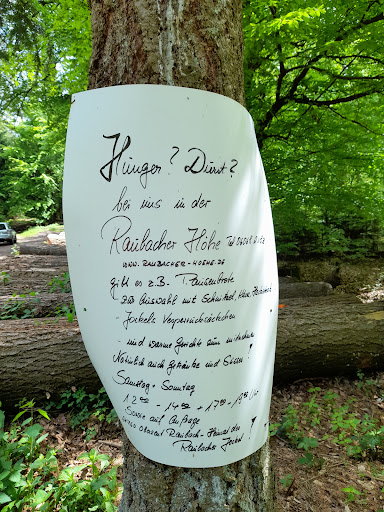 Hunger? Durst?
bei uns in der
Raubacher Höhe Tel
WWW.RAUBACHER-HOEHE.DE
gibt es z.B. Pausenbrote
zur Auswahl mit Schnitzel, Käse,
- Jockels Vesperrucksäckchen
- und warme Gerichte zum mitnehmen
Natürlich auch Getränke und Süsses!
Samstag + Sonntag
12 00 - 14 00 + 17 00 - 19 00
Sowie auf Anfrage
Raubach - Heimat des
Raubacher Jockel!